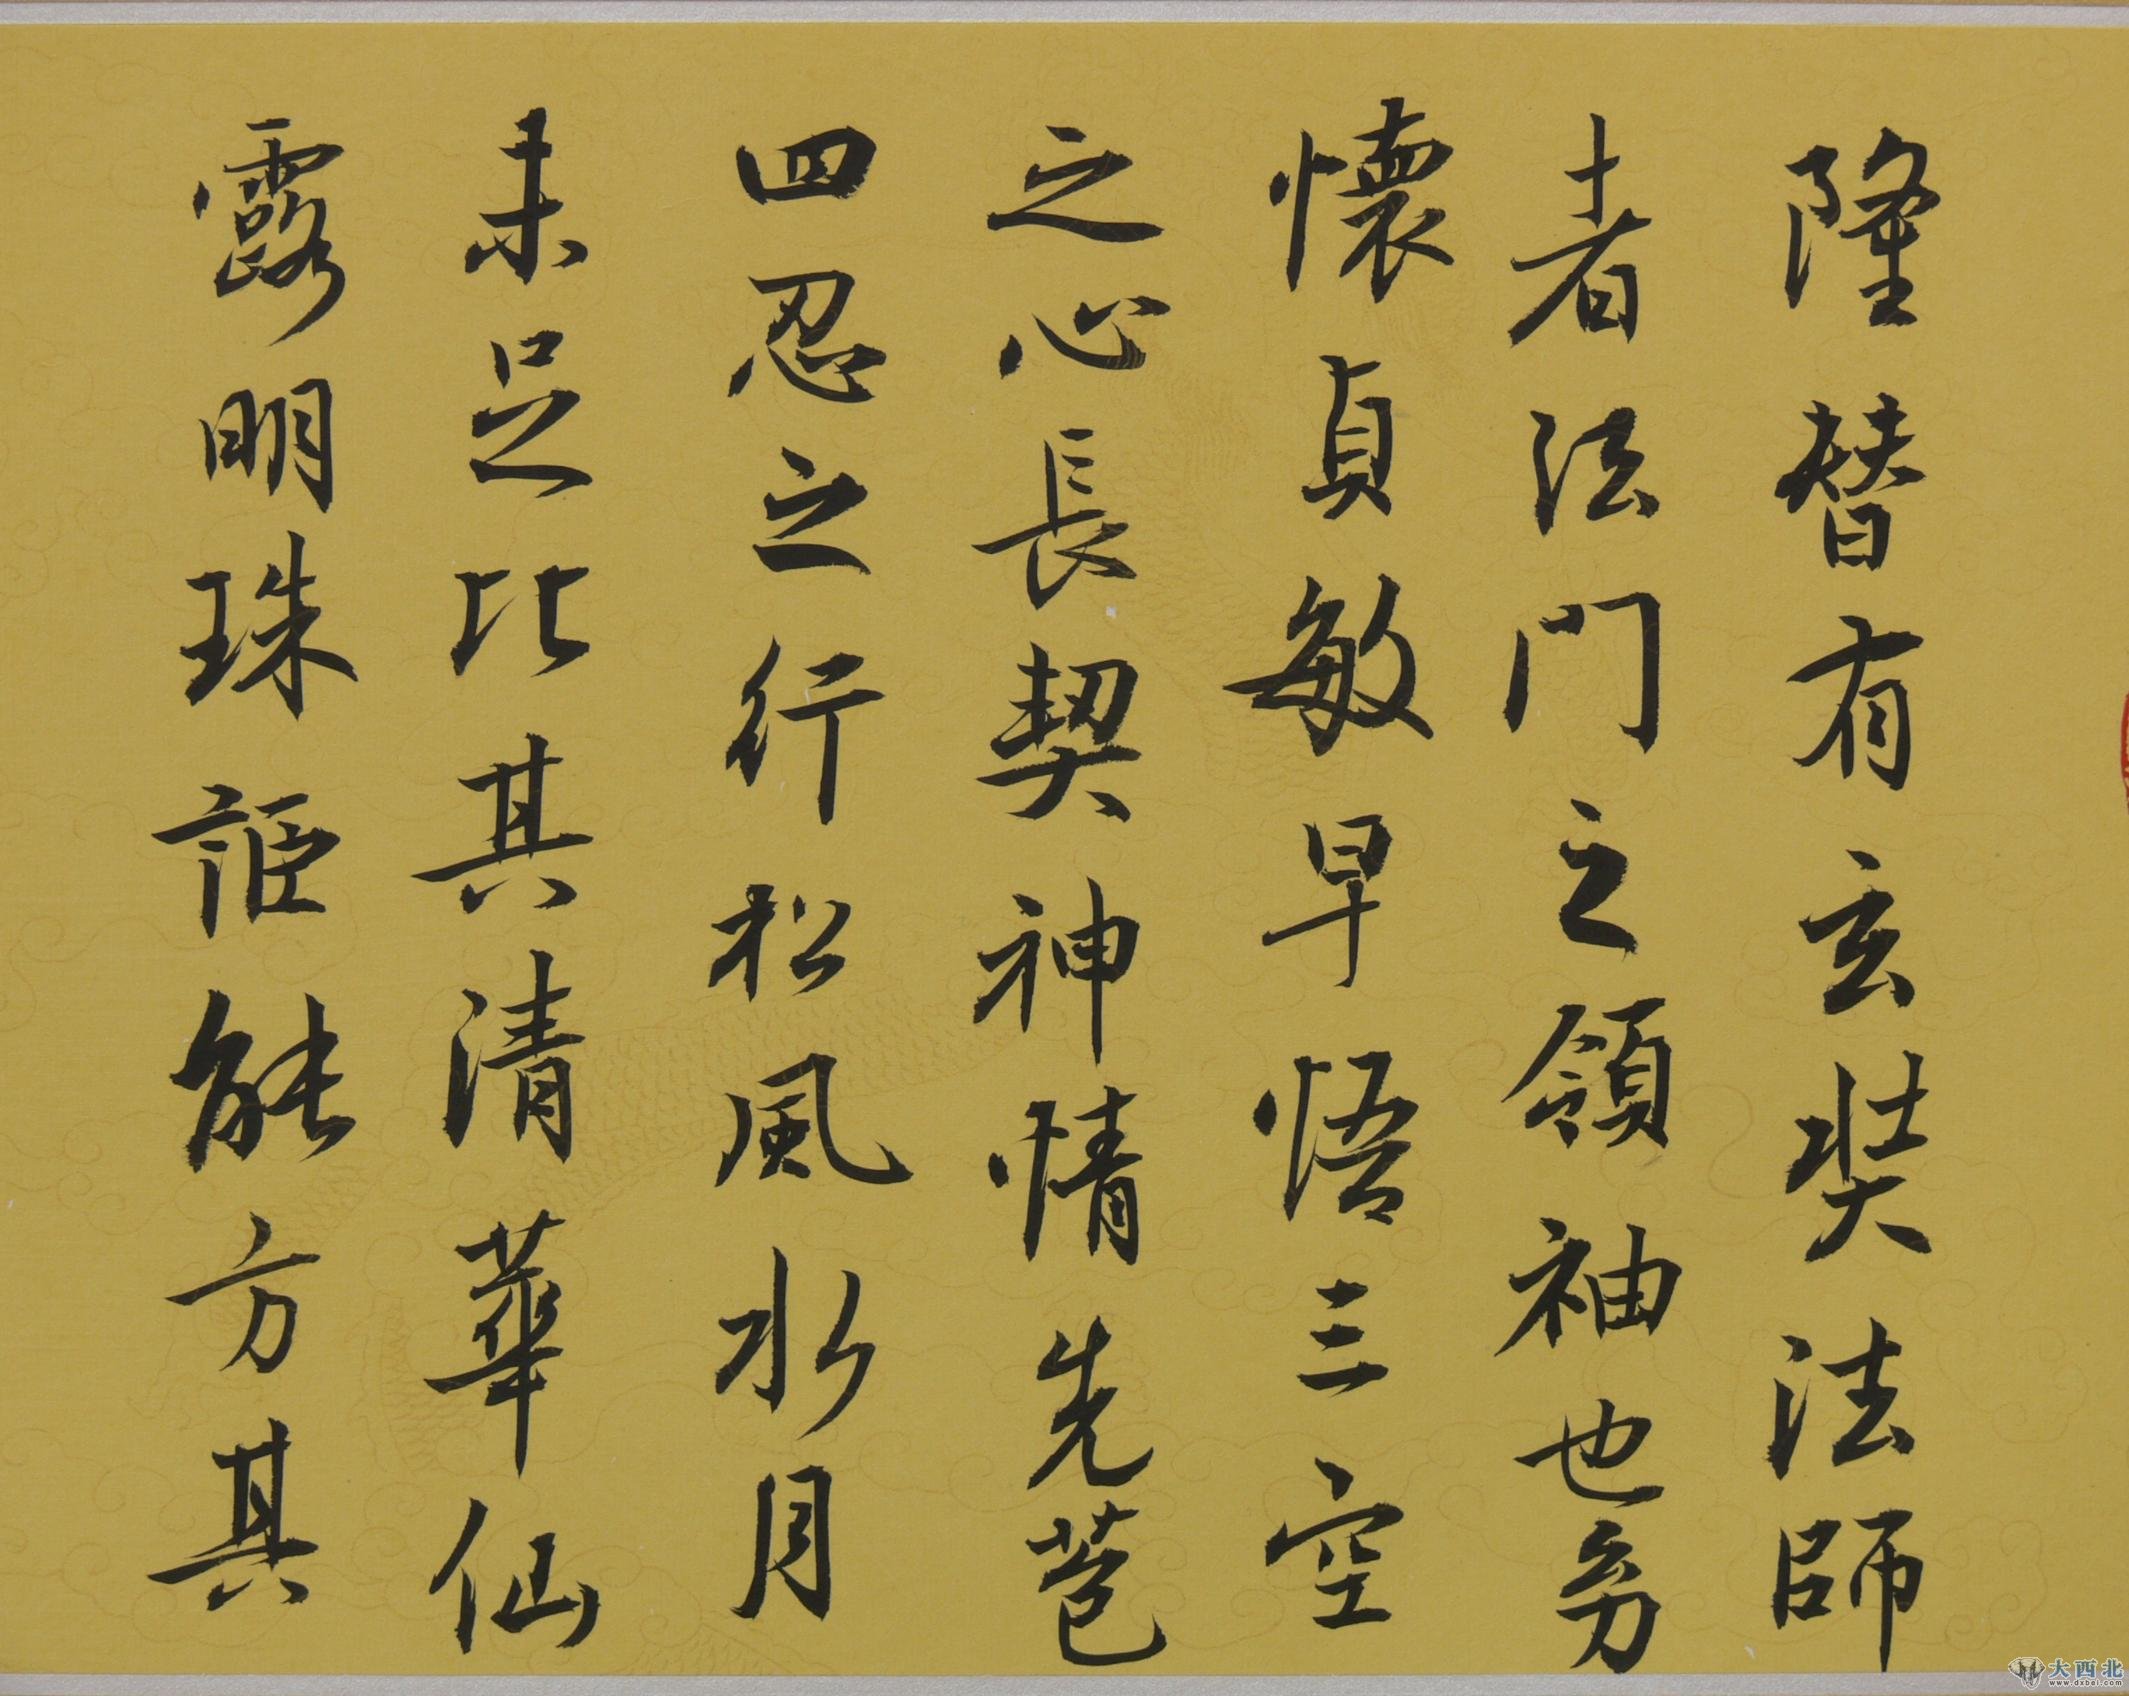 隆替有玄奘法師
者法門之領袖也㓜
懷貞敏早悟三空
之心長契神情先苞
四忍之行松風水月
未足比其清華仙
露明珠詎能方其
大西北
www.dxbei.com